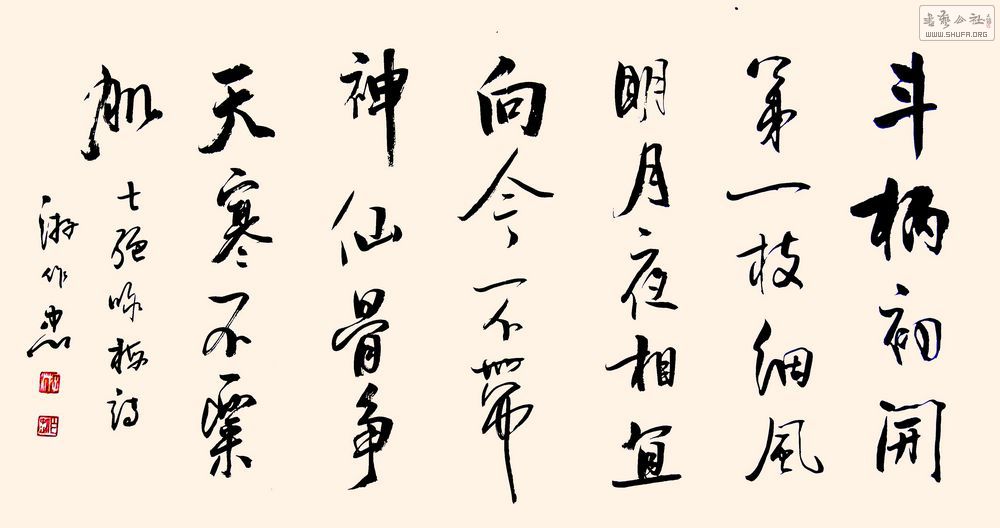 斗柄初開
第一枝細風
明月夜相宜
向今不帶
神仙骨争
天寒不粟
肌
七絕咏梅詩
游作忠
书艺公社
WWW.SHUFA.ORG